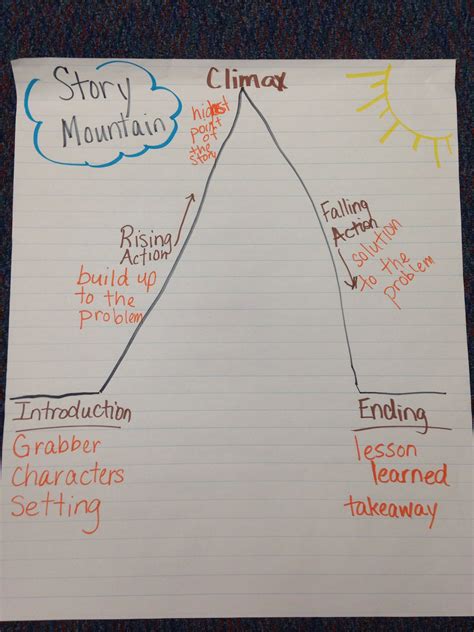 Story
Mountain
Climax
highest
point
of
the
story
Rising
Action
build up
to the
problem
Falling
Action
solution
to the
problem
Introduction
Grabber
Characters
Setting
Ending
lesson
learned
takeaway